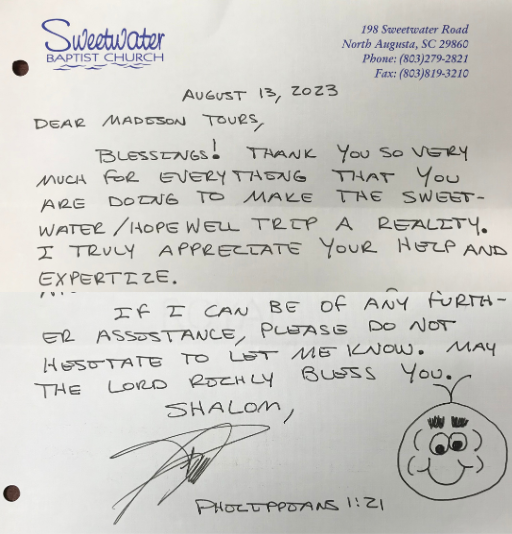 Sweetwater
BAPTIST CHURCH
198 Sweetwater Road
North Augusta, SC 29860
Phone: (803)279-2821
Fax: (803)819-3210
AUGUST 13, 2023
DEAR MADISON TOURS,
BLESSINGS! THANK YOU SO VERY
MUCH FOR EVERYTHING THAT YOU
ARE DOING TO MAKE THE SWEET-
WATER/HOPEWELL TRIP A REALITY.
I TRULY APPRECIATE YOUR HELP AND
EXPERTIZE.
IF I CAN BE OF ANY FURTH-
ER ASSISTANCE, PLEASE DO NOT
HESITATE TO LET ME KNOW. MAY
THE LORD RICHLY BLESS YOU.
SHALOM,
PHILIPPIANS 1:21